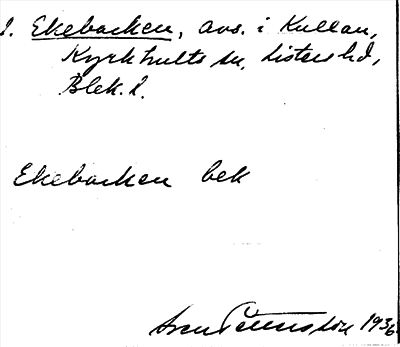 1. Ekebacken, avs. i Kullan,
Kyrkhults sn, Listers hd,
Blek. l.
Ekebacken bek
Sven Pettersson 1936